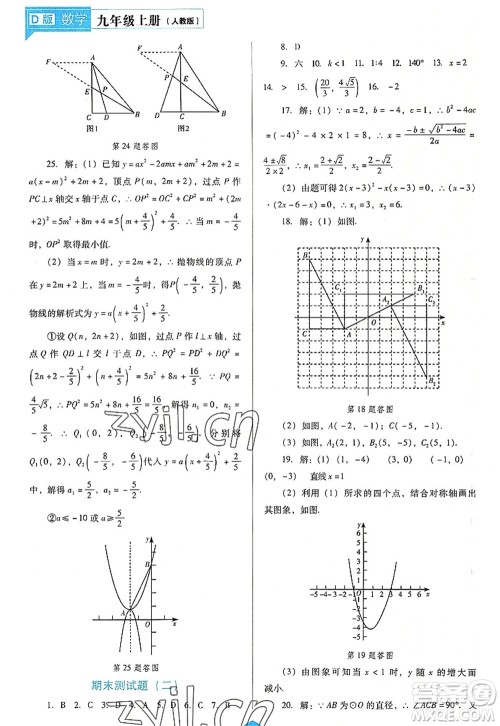 D版 数学 九年级上册（人教版）
图1 图2
第24题答图
25. 解：（1）已知 y=ax²-2amx+am²+2m+2=
a(x-m)²+2m+2，顶点 P(m，2m+2)，过点 P 作
PC⊥x 轴交 x 轴于点 C，∴ OP²=OC²+PC²=m²+
(2m+2)²=5m²+8m+4=5(m+4/5)²+4/5，∴ 当 m=-4/5
时，OP² 取得最小值.
（2）当 x=m 时，y=2m+2，∴ 抛物线的顶点 P
在直线 y=2x+2 上，当 m=-4/5 时，P(-4/5，2/5)，抛
物线的解析式为 y=a(x+4/5)²+2/5.
①设 Q(n，2n+2)，过点 P 作 l⊥x 轴，过
点 Q 作 QD⊥l 于点 D，∴ PQ²=PD²+QD²，PQ²=
(2n+2-2/5)²+(n+4/5)²=5n²+8n+16/5，∵ PQ=
4/5√5，∴ PQ²=16/5=5n²+8n+16/5，解得 n₁=0，n₂=
-8/5，∴ Q₁(0，2)，Q₂(-8/5，-6/5)，分别将
Q₁(0，2)，Q₂(-8/5，-6/5)代入 y=a(x+4/5)²+
2/5，解得 a₁=5/2，a₂=-5/2.
②a≤-10 或 a≥5/2
第25题答图
期末测试题（二）
1. B 2. C 3. D 4. A 5. B 6. B 7. B
8. D
9. 六 10. k<1 11. -4 12. 140° 13. x=2
14. > 15. (20/3，4√5/3) 16. 2
17. 解：（1）∵ a=2，b=-4，c=-1，∴ b²-4ac
=(-4)²-4×2×(-1)=24>0，∴ x=(-b±√(b²-4ac))/2a=
(4±√24)/(2×2)=(2±√6)/2.
（2）由题可得2(x-3)²-x(x-3)=0，∴ (x-3)·
(2x-6-x)=0，∴ x₁=3，x₂=6.
18. 解：（1）如图.
第18题答图
（2）如图，A₂(2，1)；C₂(-5，-1).
（3）如图，B₃(4，2).
19. 解：（1）(1，-4) (3，0) (-1，0)
(0，-3) 直线 x=1
（2）利用（1）所求的四个点，结合对称轴画出
其图象，如图.
第19题答图
（3）由图象可知当 x<1 时，y 随 x 的增大而
减小.
20. 解：（1）∵ AB为⊙O的直径，∴ ∠ACB=90°，
zyjl.cn
zyjl.cn